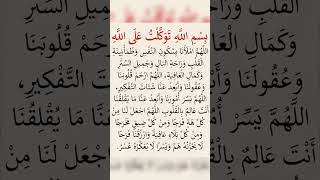 بِسْمِ اللَّهِ تَوَكَّلْتُ عَلَى اللَّهِ
اللَّهُمَّ امْلَأْنَا بِسُكُونِ النَّفْسِ وَطُمَأْنِينَةِ
الْقَلْبِ وَرَاحَةِ الْبَالِ وَجَمِيلِ السَّتْرِ
وَكَمَالِ الْعَافِيَةِ، اللَّهُمَّ ارْحَمْ قُلُوبَنَا
وَعُقُولَنَا وَأَبْعِدْ عَنَّا شَتَاتَ التَّفْكِيرِ،
اللَّهُمَّ يَسِّرْ أُمُورَنَا وَأَبْعِدْ عَنَّا مَا يُقْلِقُنَا
أَنْتَ عَالِمٌ بِالْقُلُوبِ اللَّهُمَّ اجْعَلْ لَنَا مِنْ
كُلِّ هَمٍّ فَرَجًا وَمِنْ كُلِّ ضِيقٍ مَخْرَجًا
وَمِنْ كُلِّ بَلَاءٍ عَافِيَةً وَارْزُقْنَا فَرَحًا
لَا يَحْزُنُهُ هَمٌّ وَيُسْرًا لَا يُعَكِّرُهُ عُسْرٌ.